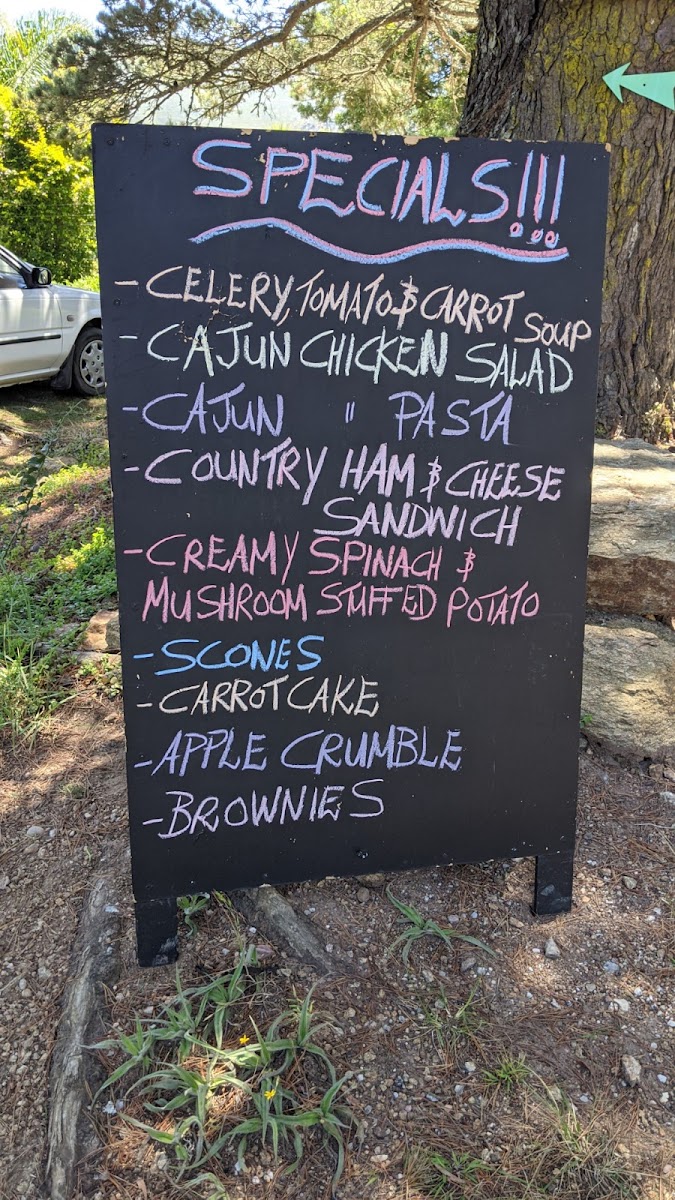 SPECIALS!!!
- CELERY, TOMATO & CARROT SOUP
- CAJUN CHICKEN SALAD
- CAJUN " PASTA
- COUNTRY HAM & CHEESE
SANDWICH
- CREAMY SPINACH &
MUSHROOM STUFFED POTATO
- SCONES
- CARROT CAKE
- APPLE CRUMBLE
- BROWNIES